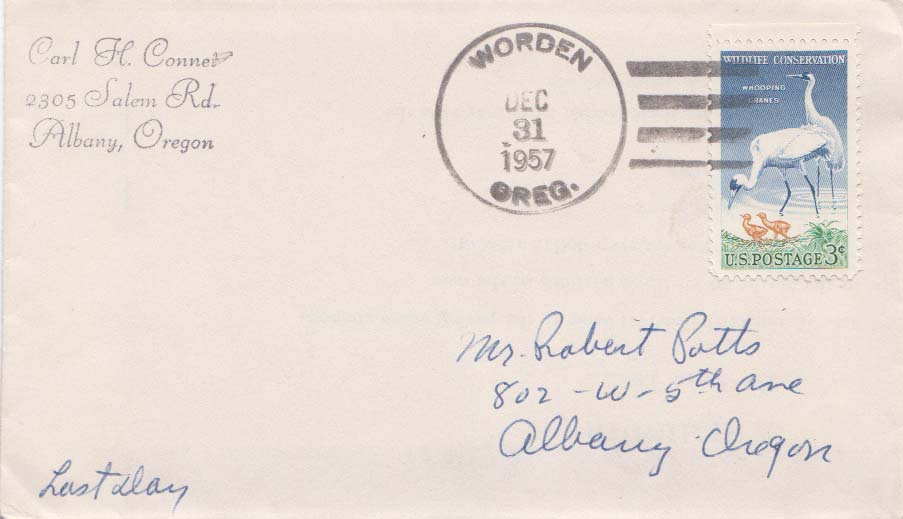 Carl H. Conner
2305 Salem Rd.
Albany, Oregon
WORDEN
DEC
31
1957
OREG.
WILDLIFE CONSERVATION
WHOOPING
CRANES
U.S. POSTAGE 3¢
Mr. Robert Potts
802 - W - 5th ave
Albany Oregon
Last day